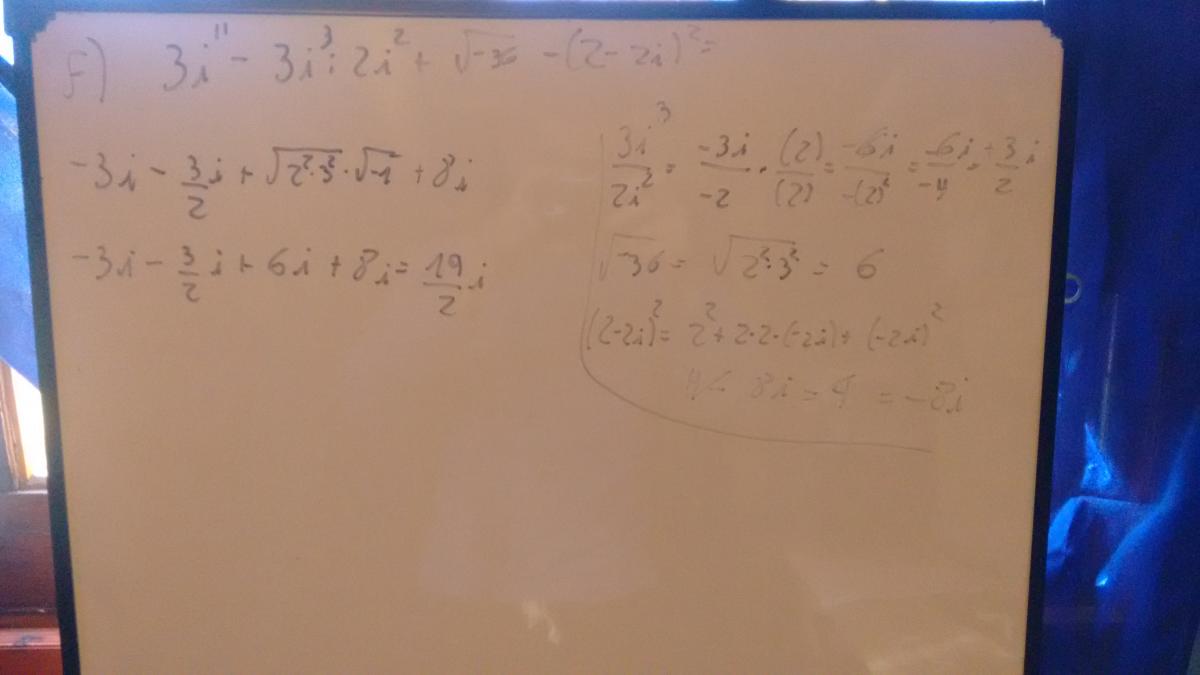 F) 3i¹¹ - 3i³ : 2i² + √-36 - (2 - 2i)² =
-3i - 3/2 i + √2²·3² · √-1 + 8i
-3i - 3/2 i + 6i + 8i = 19/2 i
3i³/2i² = -3i/-2 · (2)/(2) = -6i/-(2)² = -6i/-4 = +3/2 i
√-36 = √2²·3² = 6
(2-2i)² = 2² + 2·2·(-2i) + (-2i)²
4 - 8i - 4 = -8i